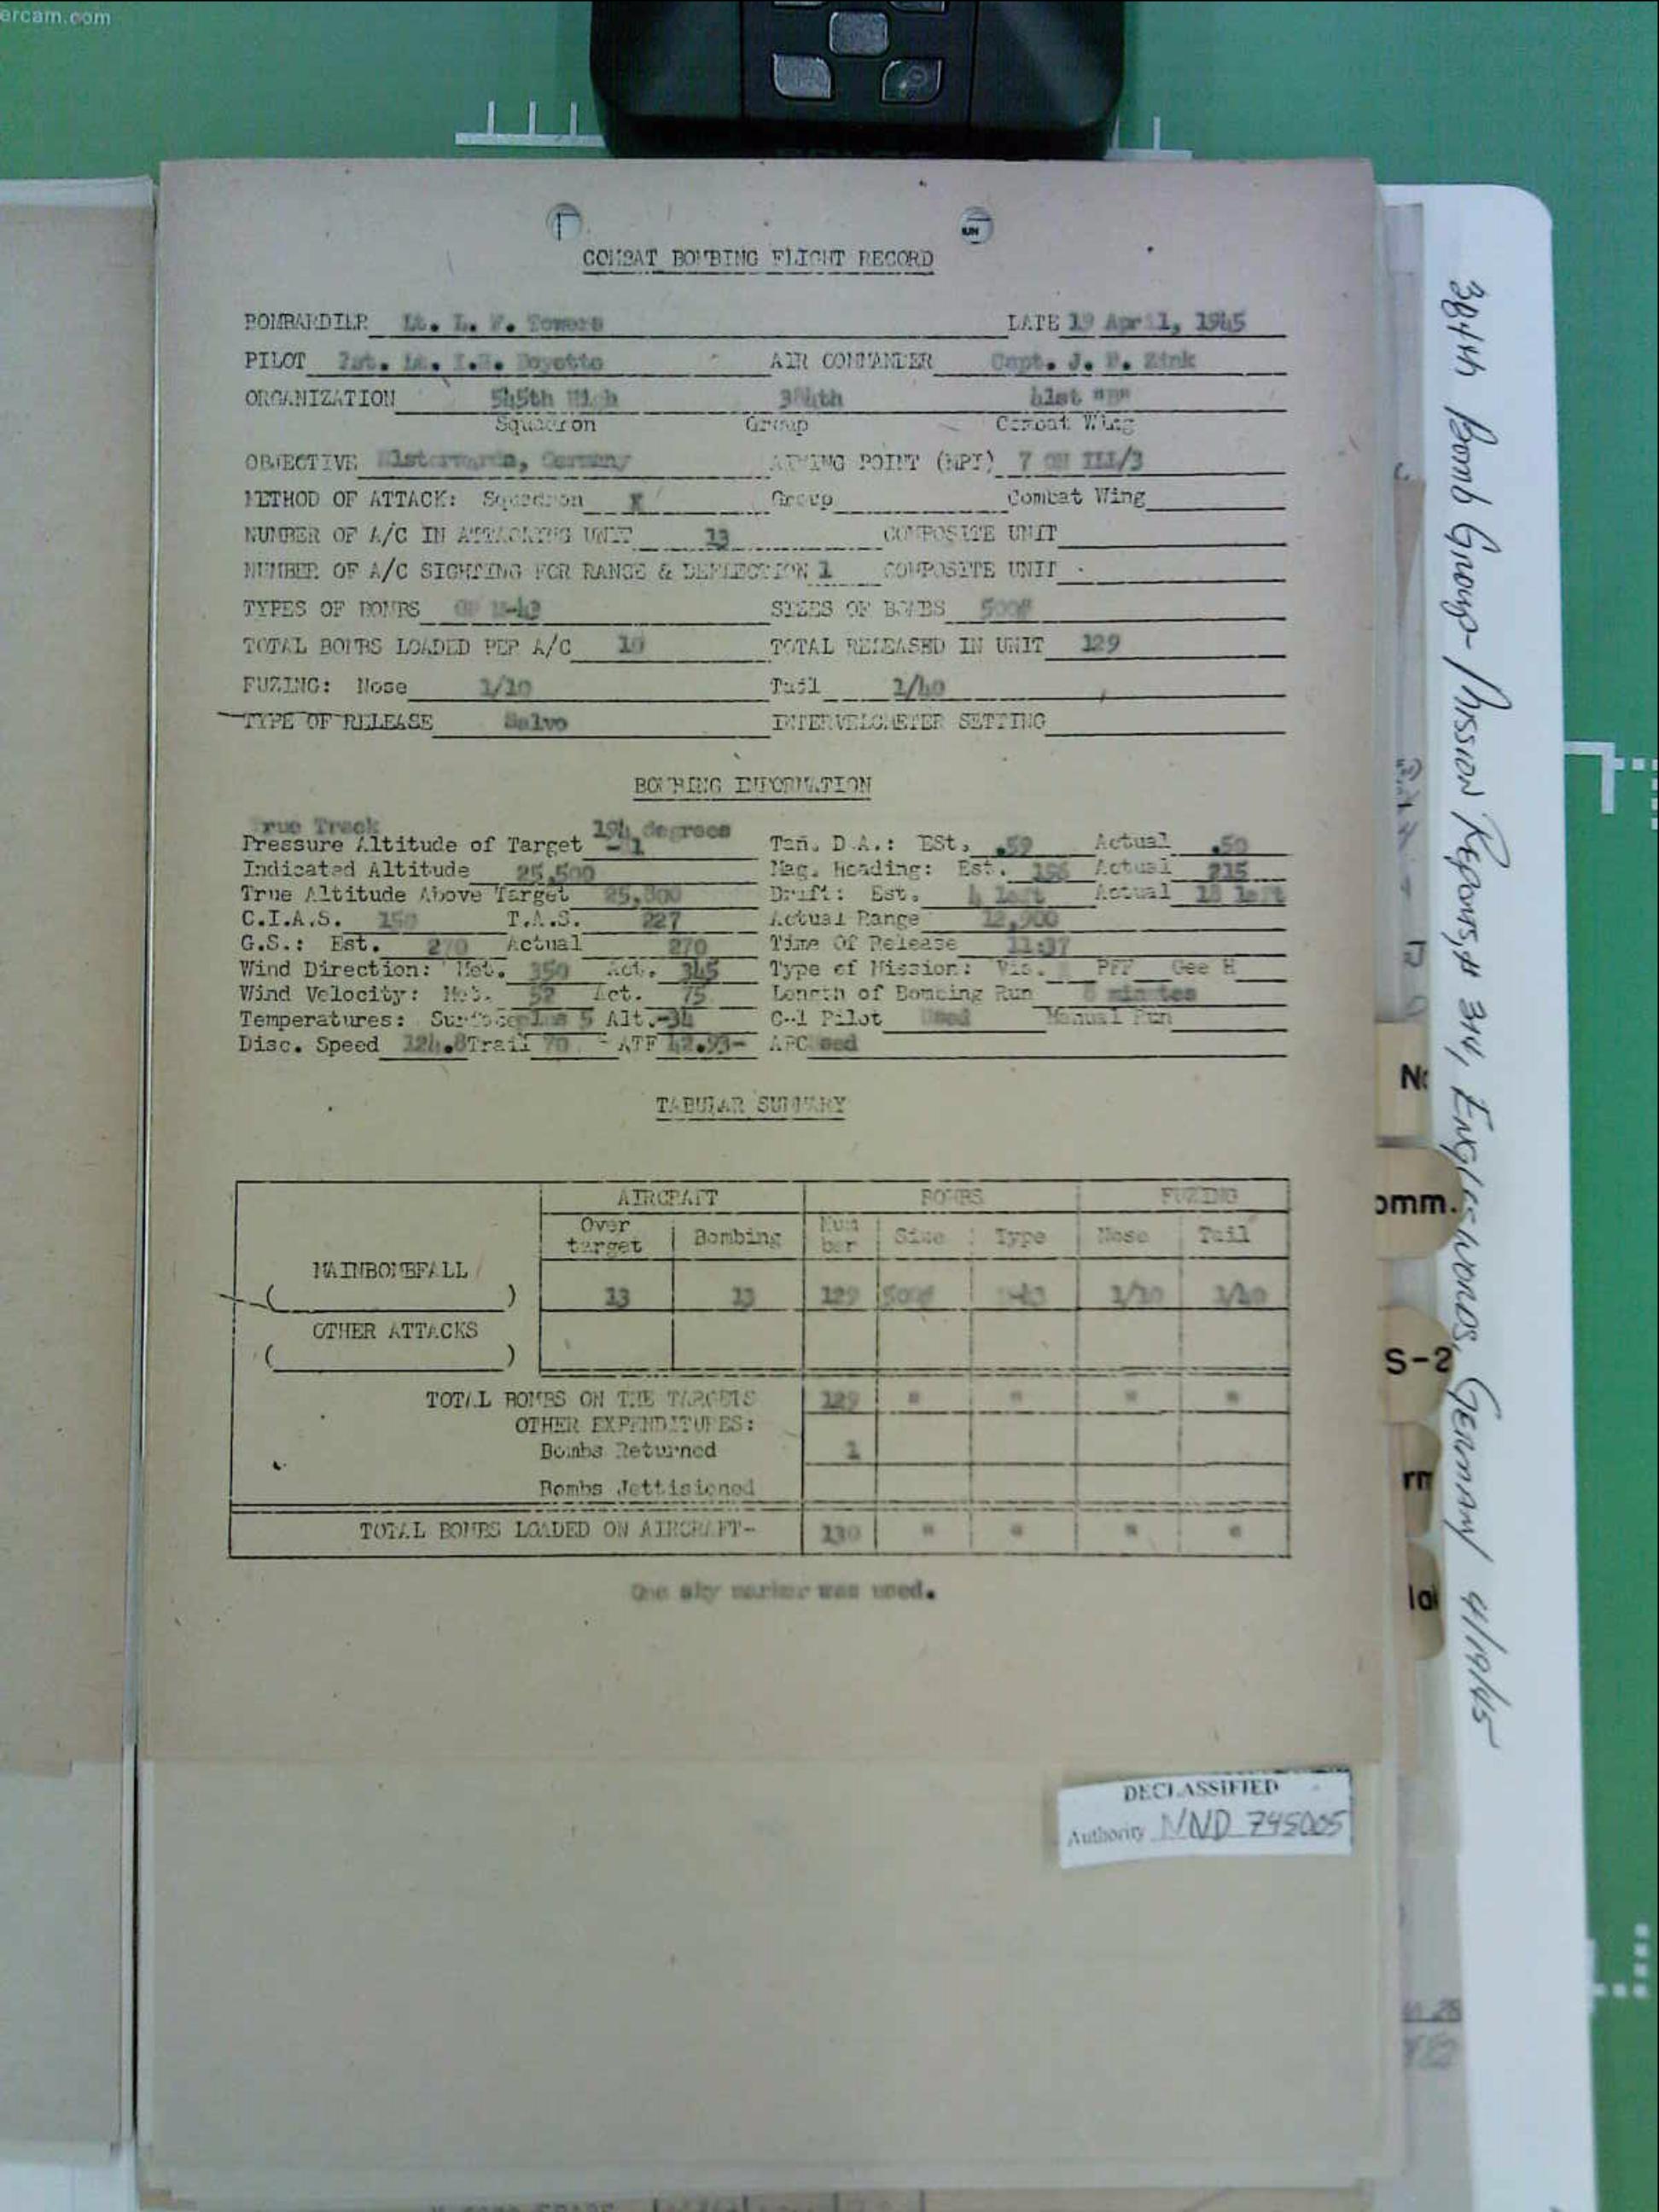 ercam.com
COMBAT BOMBING FLIGHT RECORD
BOMBARDIER Lt. L. F. Towers DATE 19 April, 1945
PILOT 1st. Lt. Doyette AIR COMMANDER Capt. J. Zink
ORGANIZATION 545th High 384th 41st "B"
Squadron Group Combat Wing
OBJECTIVE Elsterwerda, Germany AIMING POINT (MPI) 7 ON III/3
METHOD OF ATTACK: Squadron X Group Combat Wing
NUMBER OF A/C IN ATTACKING UNIT 13 COMPOSITE UNIT
NUMBER OF A/C SIGHTING FOR RANGE & DEFLECTION 1 COMPOSITE UNIT
TYPES OF BOMBS GP M-43 SIZES OF BOMBS 500#
TOTAL BOMBS LOADED PER A/C 10 TOTAL RELEASED IN UNIT 129
FUZING: Nose 1/10 Tail 1/40
TYPE OF RELEASE Salvo INTERVALOMETER SETTING
BOMBING INFORMATION
True Track 194 degrees
Pressure Altitude of Target -1 Tan. D.A.: Est. .59 Actual .50
Indicated Altitude 25,500 Mag. Heading: Est. Actual 215
True Altitude Above Target 25,800 Drift: Est. 4 left Actual 18 left
C.I.A.S. 150 T.A.S. 227 Actual Range 12,900
G.S.: Est. 270 Actual 270 Time Of Release 11:37
Wind Direction: Met. 350 Act. 345 Type of Mission: Vis. PFF Gee H
Wind Velocity: Met. 52 Act. 75 Length of Bombing Run minutes
Temperatures: Surface plus 5 Alt. -34 C-1 Pilot Used Manual Run
Disc. Speed 124.8 Trail 70 ATF 42.93- AFC used
TABULAR SUMMARY
AIRCRAFT BOMBS FUZING
Over target Bombing Number Size Type Nose Tail
MAINBOMBFALL
( ) 13 13 129 500# M-43 1/10 1/40
OTHER ATTACKS
( )
TOTAL BOMBS ON THE TARGETS 129 " " " "
OTHER EXPENDITURES:
Bombs Returned 1
Bombs Jettisioned
TOTAL BOMBS LOADED ON AIRCRAFT- 130 " " " "
One sky marker was used.
DECLASSIFIED
Authority NND 745005
384th Bomb Group - Mission Reports, # 314, Englesworda, Germany 4/19/45
omm.
S-2